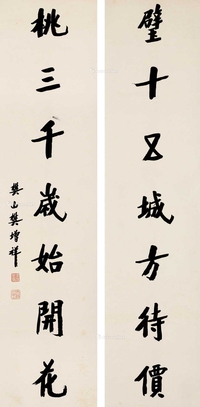 璧十五城方待價
桃三千歲始開花
樊山樊增祥